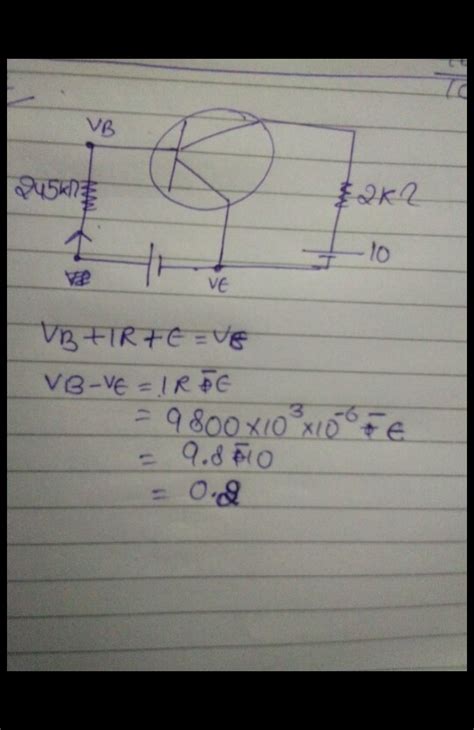 VB
245kΩ
2kΩ
10
VE
VB+IR+E=VE
VB-VE = IR-E
= 9800×10³×10⁻⁶-E
= 9.8-10
= 0.2